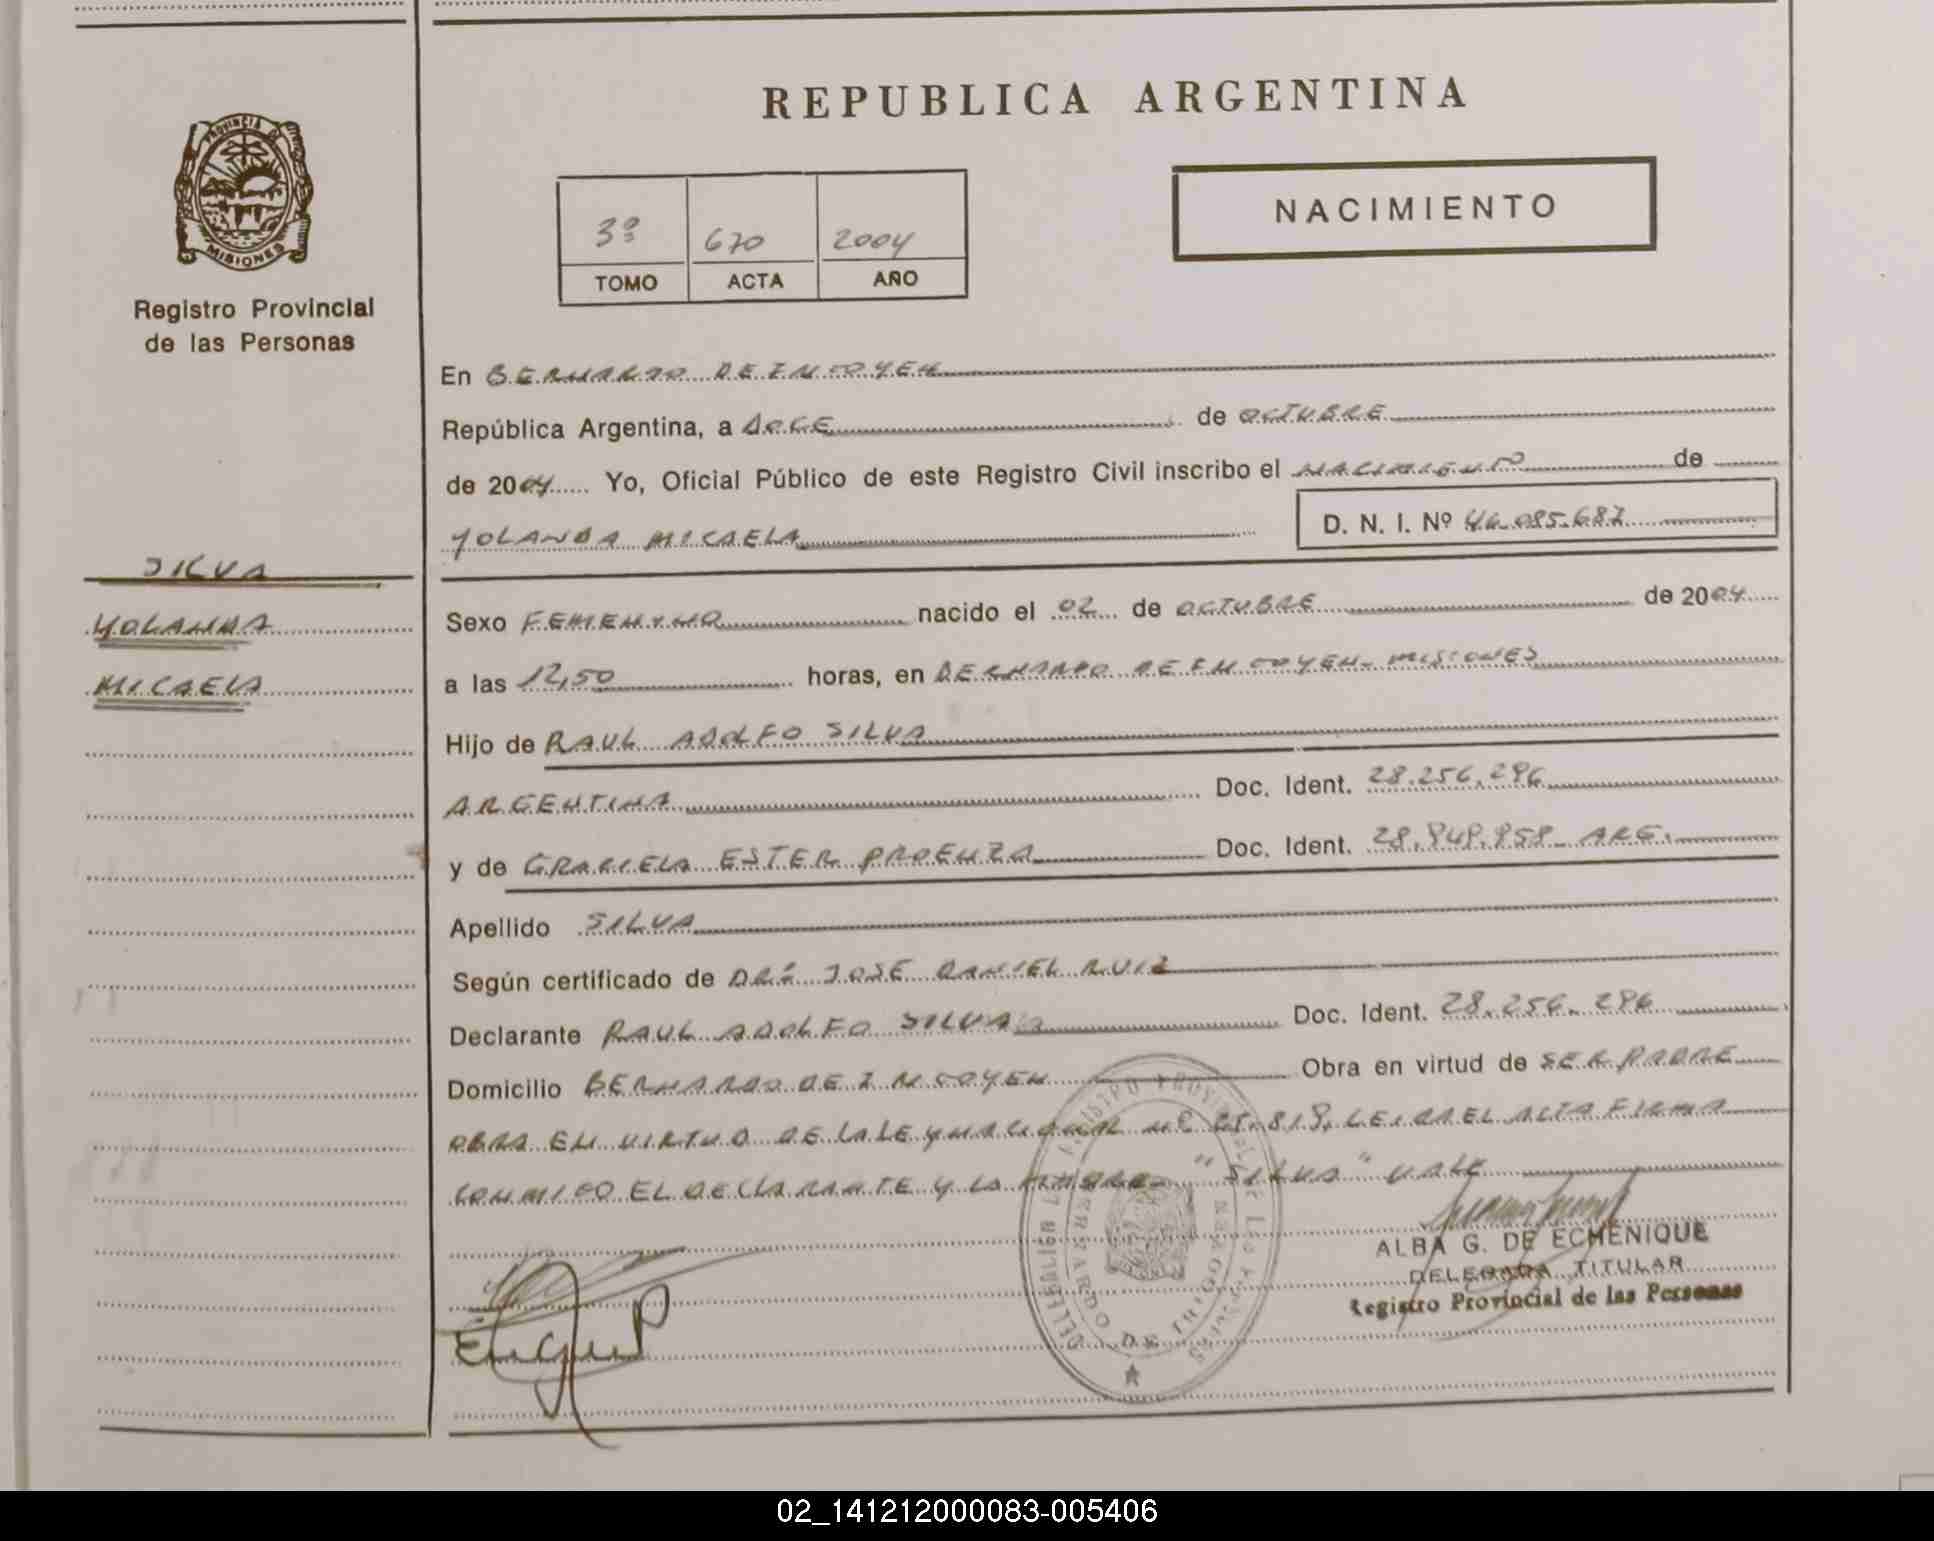 REPUBLICA ARGENTINA
PROVINCIA DE
MISIONES
Registro Provincial
de las Personas
3º 670 2004
TOMO ACTA AÑO
NACIMIENTO
En BERNARDO DE IRIGOYEN
República Argentina, a DOCE de OCTUBRE
de 2004 Yo, Oficial Público de este Registro Civil inscribo el NACIMIENTO de
YOLANDA MICAELA D. N. I. Nº 46.085.687
SILVA
YOLANDA
MICAELA
Sexo FEMENINO nacido el 02 de OCTUBRE de 2004
a las 12,50 horas, en BERNARDO DE IRIGOYEN- MISIONES
Hijo de RAUL ADOLFO SILVA
ARGENTINA Doc. Ident. 28.256.296
y de GRACIELA ESTER PROENZA Doc. Ident. 28.949.958- ARG.
Apellido SILVA
Según certificado de DRª JOSE DANIEL RUIZ
Declarante RAUL ADOLFO SILVA Doc. Ident. 28.256.296
Domicilio BERNARDO DE IRIGOYEN Obra en virtud de SER PADRE
OBRA EN VIRTUD DE LA LEY NACIONAL Nº LEIDA EL ACTA FIRMA
CONMIGO EL DECLARANTE Y LA "SILVA" VALE
ALBA G. DE ECHENIQUE
DELEGADA TITULAR
Registro Provincial de las Personas
02_141212000083-005406